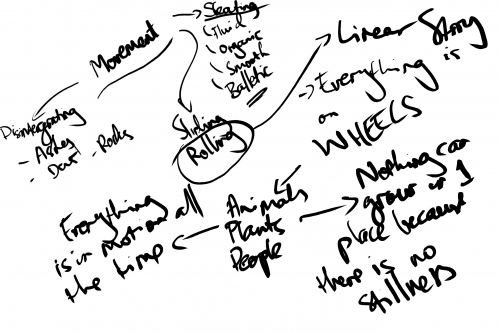 Movement
Skating
Fluid
Organic
Smooth
Balletic
Disintergrating
- Ashes
- Dust - Rocks
Rolling
Linear Story
Everything is
on
WHEELS
Animals
Plants
People
Everything
is in motion all
the time
Nothing can
grow in 1
place because
there is no
stillness